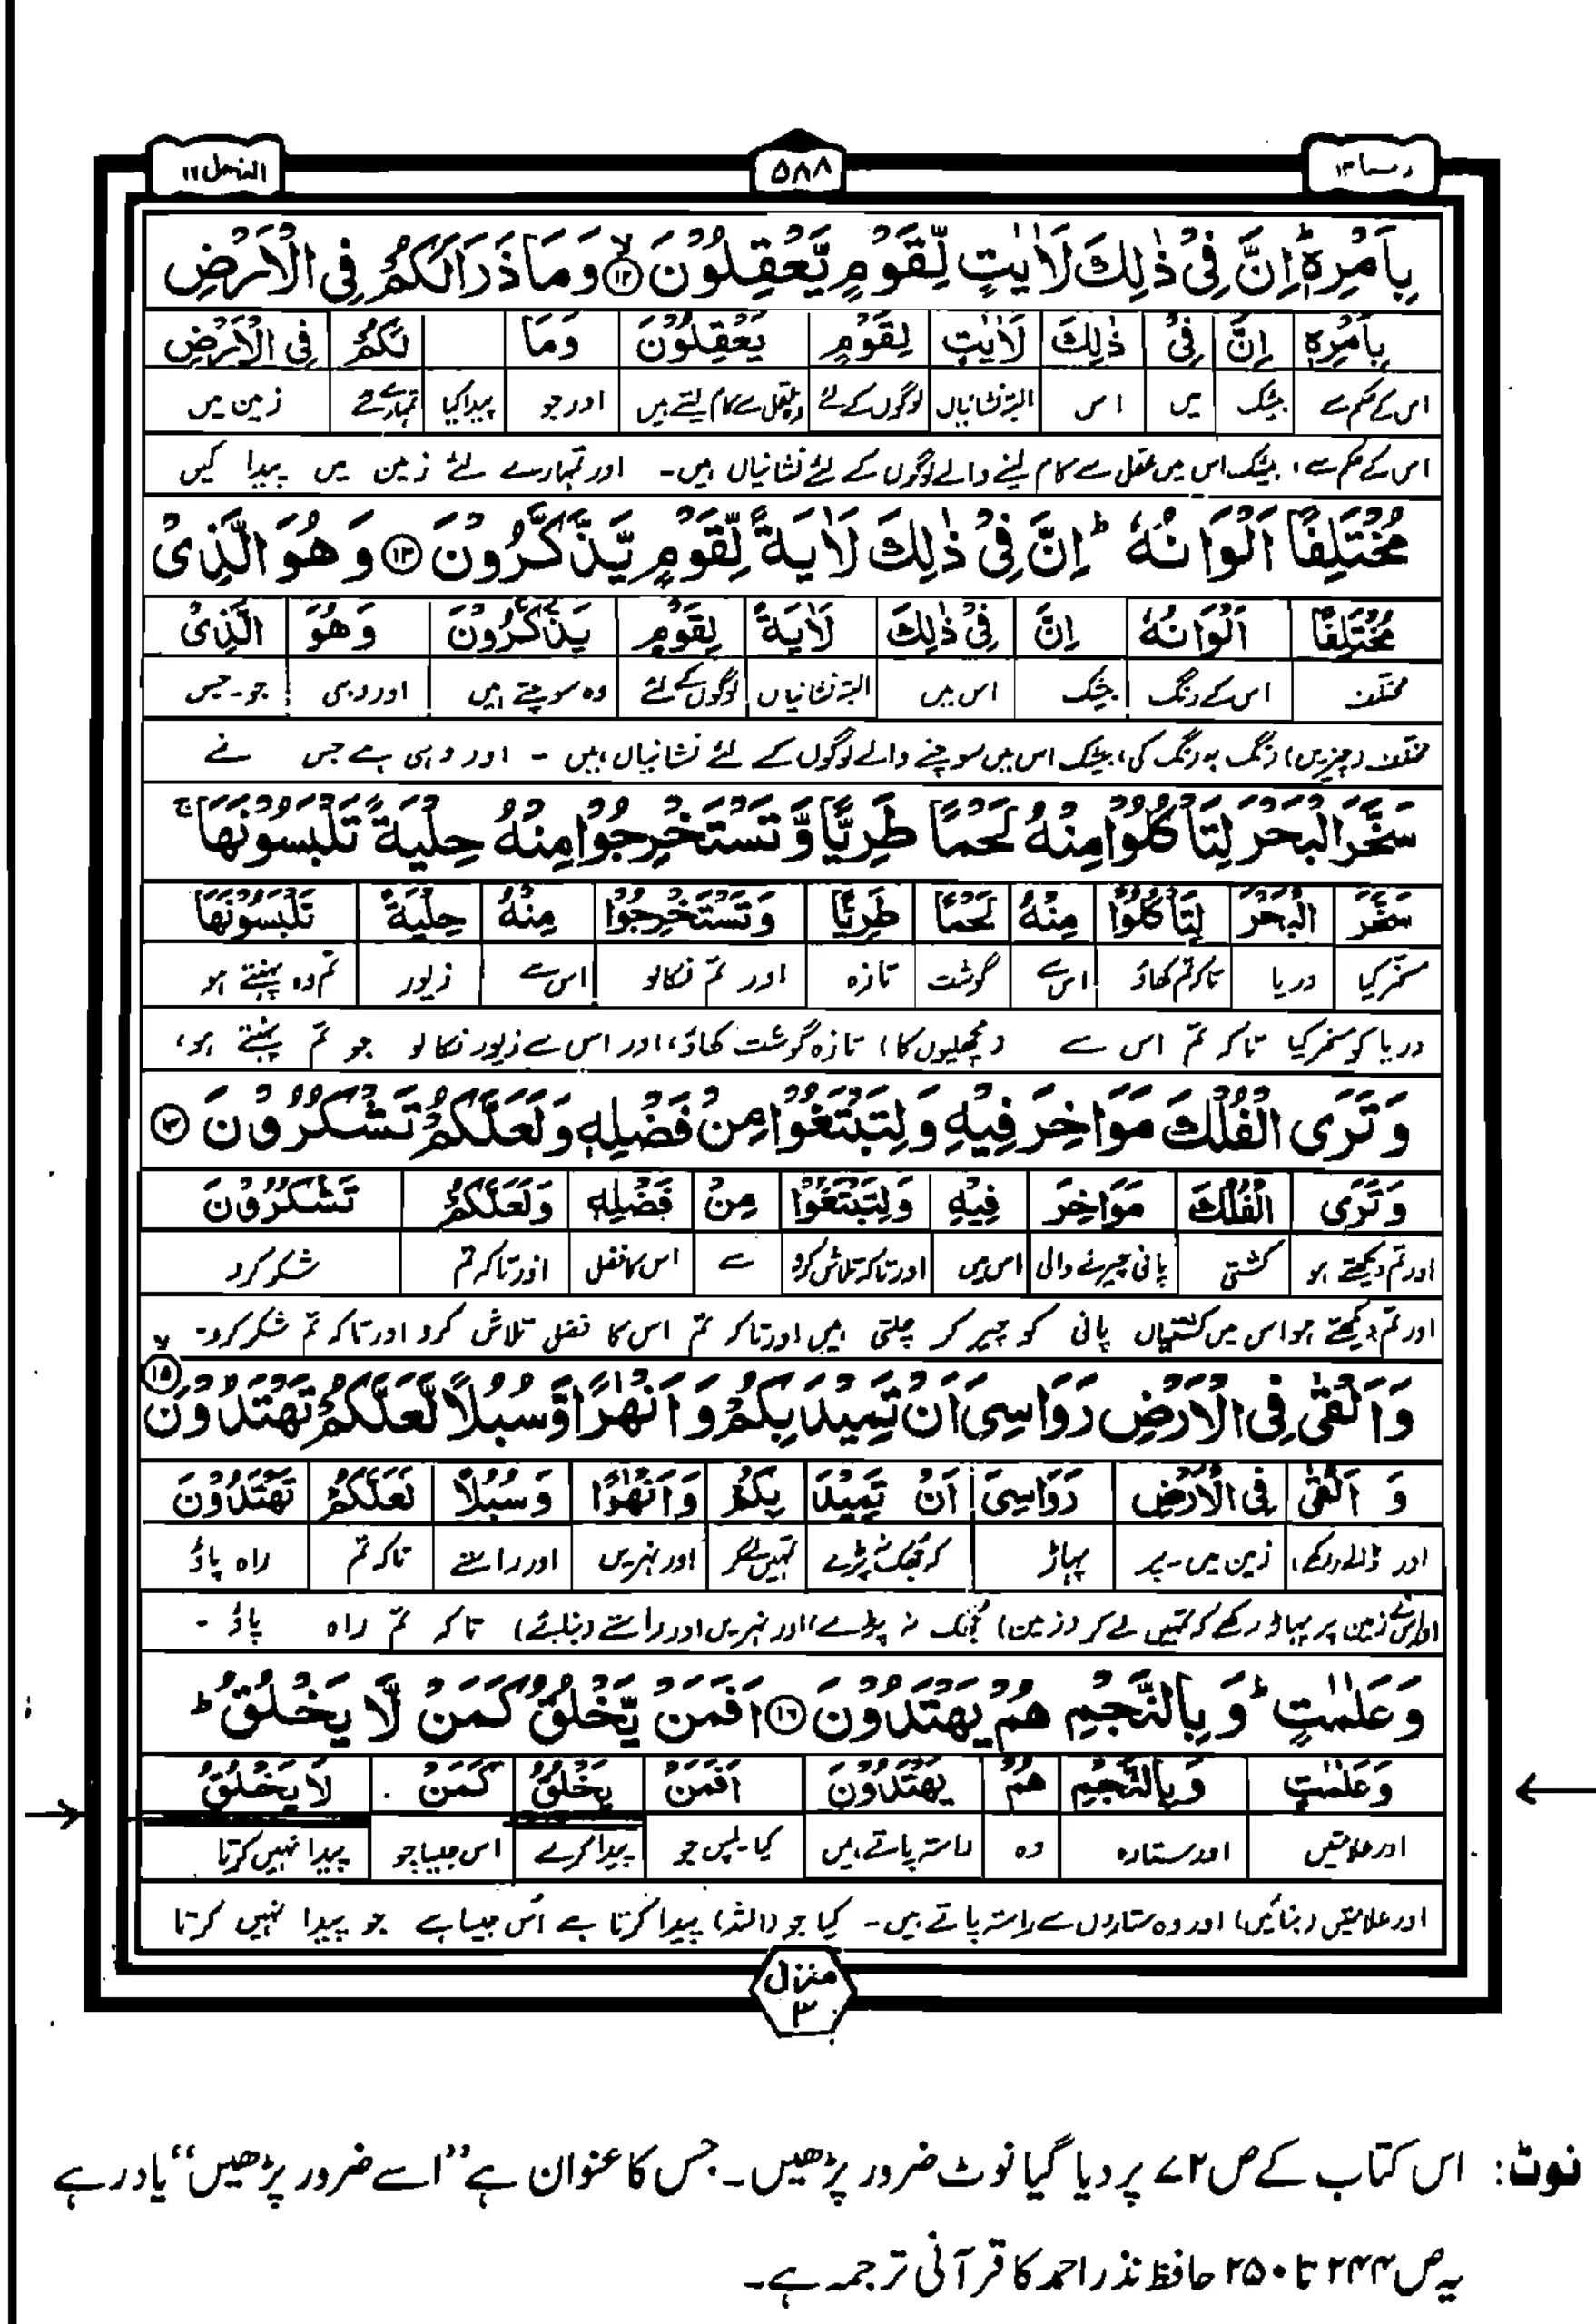 ربما ۱۴
۵۸۸
النحل ۱۶
بِاَمْرِهٖ ؕ اِنَّ فِیْ ذٰلِكَ لَاٰیٰتٍ لِّقَوْمٍ یَّعْقِلُوْنَ ۙ﴿۱۲﴾ وَمَا ذَرَاَ لَكُمْ فِی الْاَرْضِ
بِاَمْرِهٖ اِنَّ فِیْ ذٰلِكَ لَاٰیٰتٍ لِقَوْمٍ یَعْقِلُوْنَ وَمَا لَكُمْ فِی الْاَرْضِ
اس کے حکم سے بیشک میں اس البتہ نشانیاں لوگوں کے لئے وہ عقل سے کام لیتے ہیں اور جو پیدا کیا تمہارے لئے زمین میں
اس کے حکم سے، بیشک اس میں عقل سے کام لینے والے لوگوں کے لئے نشانیاں ہیں۔ اور تمہارے لئے زمین میں پیدا کیں
مُخْتَلِفًا اَلْوَانُهٗ ؕ اِنَّ فِیْ ذٰلِكَ لَاٰیَةً لِّقَوْمٍ یَّذَّكَّرُوْنَ ﴿۱۳﴾ وَهُوَ الَّذِیْ
مُخْتَلِفًا اَلْوَانُهٗ اِنَّ فِیْ ذٰلِكَ لَاٰیَةً لِقَوْمٍ یَذَّكَّرُوْنَ وَهُوَ الَّذِیْ
مختلف اس کے رنگ بیشک اس میں البتہ نشانیاں لوگوں کے لئے وہ سوچتے ہیں اور وہی جو۔جس
مختلف (چیزیں) رنگ بہ رنگ کی، بیشک اس میں سوچنے والے لوگوں کے لئے نشانیاں ہیں۔ اور وہی ہے جس نے
سَخَّرَ الْبَحْرَ لِتَاْكُلُوْا مِنْهُ لَحْمًا طَرِیًّا وَّتَسْتَخْرِجُوْا مِنْهُ حِلْیَةً تَلْبَسُوْنَهَا ۚ
سَخَّرَ الْبَحْرَ لِتَاْكُلُوْا مِنْهُ لَحْمًا طَرِیًّا وَتَسْتَخْرِجُوْا مِنْهُ حِلْیَةً تَلْبَسُوْنَهَا
مسخر کیا دریا تاکہ تم کھاؤ اس سے گوشت تازہ اور تم نکالو اس سے زیور تم وہ پہنتے ہو
دریا کو مسخر کیا تاکہ تم اس سے (مچھلیوں کا) تازہ گوشت کھاؤ، اور اس سے زیور نکالو جو تم پہنتے ہو،
وَتَرَی الْفُلْكَ مَوَاخِرَ فِیْهِ وَلِتَبْتَغُوْا مِنْ فَضْلِهٖ وَلَعَلَّكُمْ تَشْكُرُوْنَ ﴿۱۴﴾
وَتَرَی الْفُلْكَ مَوَاخِرَ فِیْهِ وَلِتَبْتَغُوْا مِنْ فَضْلِهٖ وَلَعَلَّكُمْ تَشْكُرُوْنَ
اور تم دیکھتے ہو کشتی پانی چیرنے والی اس میں اور تاکہ تلاش کرو سے اس کا فضل اور تاکہ تم شکر کرو
اور تم دیکھتے ہو اس میں کشتیاں پانی کو چیر کر چلتی ہیں اور تاکہ تم اس کا فضل تلاش کرو اور تاکہ تم شکر کرو۔
وَاَلْقٰی فِی الْاَرْضِ رَوَاسِیَ اَنْ تَمِیْدَ بِكُمْ وَاَنْهٰرًا وَّسُبُلًا لَّعَلَّكُمْ تَهْتَدُوْنَ ۙ﴿۱۵﴾
وَ اَلْقٰی فِی الْاَرْضِ رَوَاسِیَ اَنْ تَمِیْدَ بِكُمْ وَاَنْهٰرًا وَسُبُلًا لَعَلَّكُمْ تَهْتَدُوْنَ
اور ڈالے (رکھے) زمین میں۔پر پہاڑ کہ جھک نہ پڑے تمہیں لے کر اور نہریں اور راستے تاکہ تم راہ پاؤ
اور اس نے زمین پر پہاڑ رکھے کہ تمہیں لے کر (زمین) جھک نہ پڑے، اور نہریں اور راستے (بنائے) تاکہ تم راہ پاؤ۔
وَعَلٰمٰتٍ ؕ وَبِالنَّجْمِ هُمْ یَهْتَدُوْنَ ﴿۱۶﴾ اَفَمَنْ یَّخْلُقُ كَمَنْ لَّا یَخْلُقُ ؕ
وَعَلٰمٰتٍ وَبِالنَّجْمِ هُمْ یَهْتَدُوْنَ اَفَمَنْ یَخْلُقُ كَمَنْ لَا یَخْلُقُ
اور علامتیں اور ستارہ وہ راستہ پاتے ہیں کیا۔پس جو پیدا کرے اس جیسا جو پیدا نہیں کرتا
اور علامتیں (بنائیں) اور وہ ستاروں سے راستہ پاتے ہیں۔ کیا جو (اللہ) پیدا کرتا ہے اُس جیسا ہے جو پیدا نہیں کرتا
منزل ۳
نوٹ: اس کتاب کے ص ۷۲ پر دیا گیا نوٹ ضرور پڑھیں۔ جس کا عنوان ہے ”اسے ضرور پڑھیں“ یاد رہے
یہ ص ۲۴۴ تا ۲۵۰ حافظ نذر احمد کا قرآنی ترجمہ ہے۔